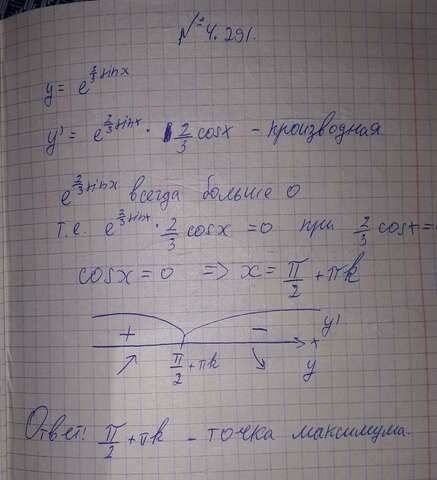 № 4.291.
y = e^(2/3 sinx)
y' = e^(2/3 sinx) · 2/3 cosx – производная
e^(2/3 sinx) всегда больше 0
т.е. e^(2/3 sinx) · 2/3 cosx = 0 при 2/3 cosx =
cosx = 0 => x = π/2 + πk
+ – y'
π/2 + πk x
y
Ответ: π/2 + πk – точка максимума.